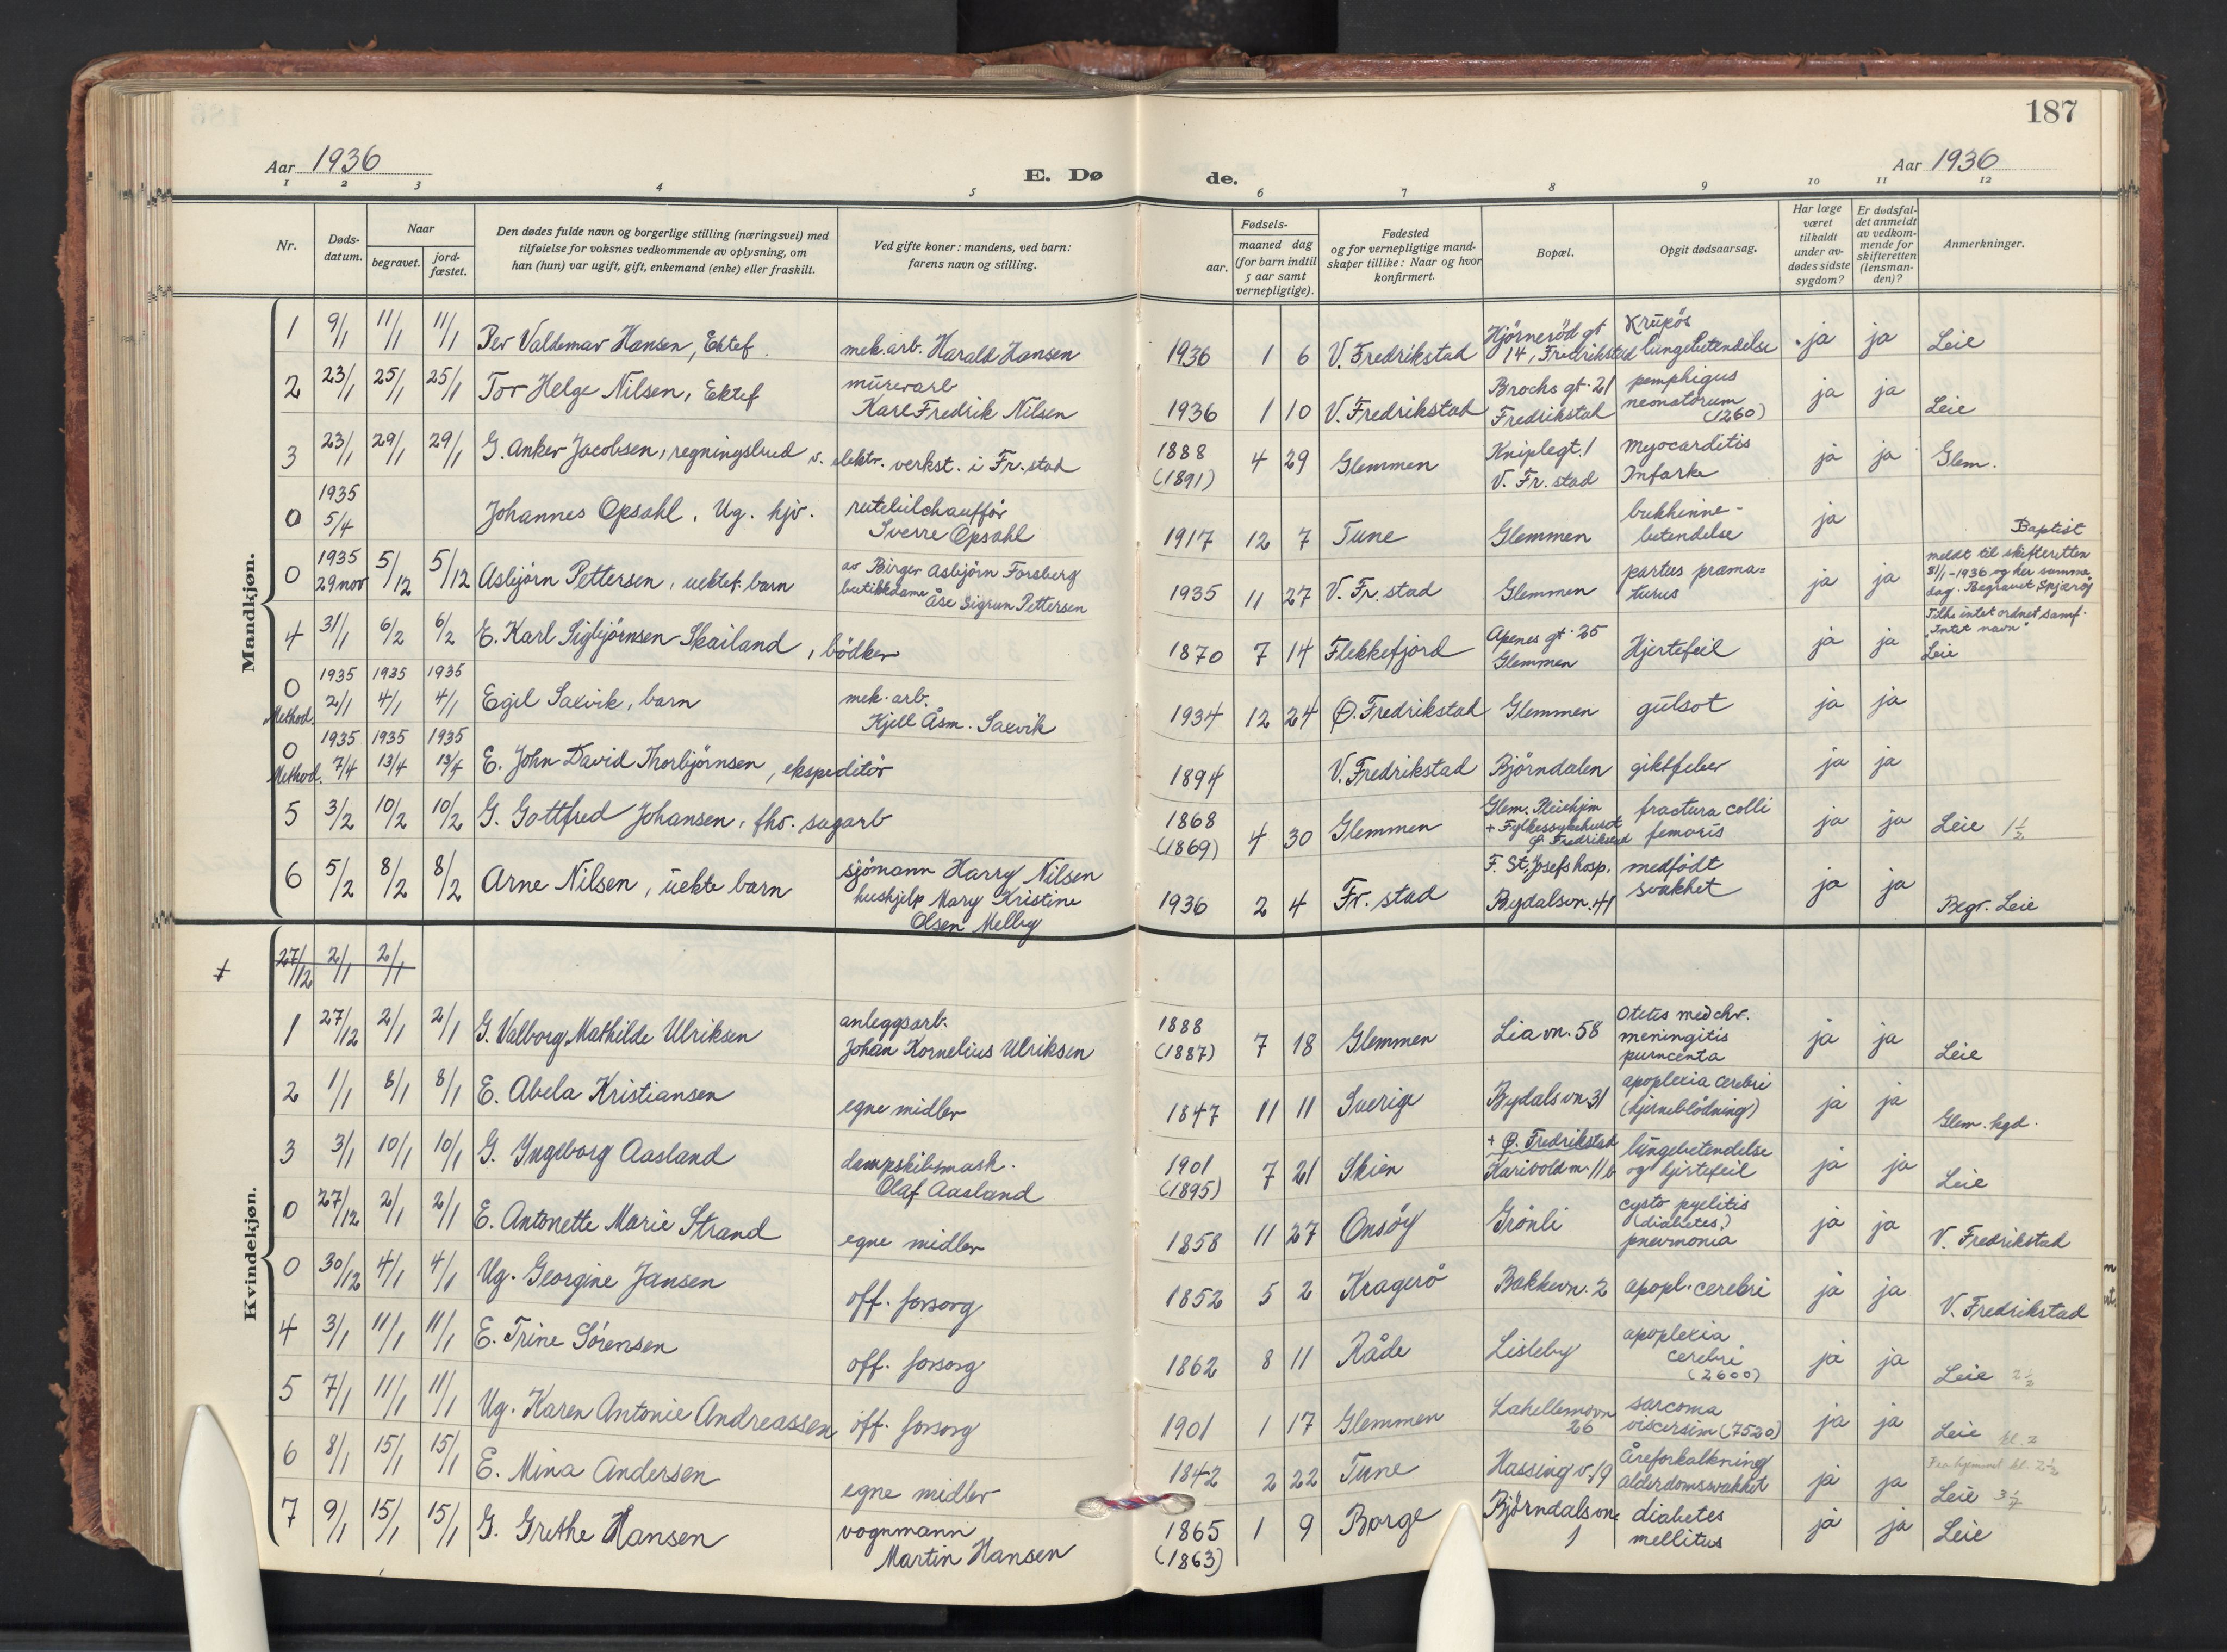 187
Aar 1936
E. Dø
de.
Aar 1936
1 2 3 4 5 6 7 8 9 10 11 12
Nr.
Døds-
datum.
Naar
begravet.
jord-
fæstet.
Den dødes fulde navn og borgerlige stilling (næringsvei) med
tilføielse for voksnes vedkommende av oplysning, om
han (hun) var ugift, gift, enkemand (enke) eller fraskilt.
Ved gifte koner: mandens, ved barn:
farens navn og stilling.
Fødsels-
aar.
maaned dag
(for barn indtil
5 aar samt
vernepligtige).
Fødested
og for vernepligtige mand-
skaper tillike: Naar og hvor
konfirmert.
Bopæl.
Opgit dødsaarsag.
Har læge
været
tilkaldt
under av-
dødes sidste
sygdom?
Er dødsfal-
det anmeldt
av vedkom-
mende for
skifteretten
(lensman-
den)?
Anmerkninger.
Mandkjøn.
1 9/1 11/1 11/1 Per Valdemar Hansen, Ektef. mek.arb. Harald Hansen 1936 1 6 V. Fredrikstad Hjørnerød gt 14, Fredrikstad Krupøs lungebetendelse ja ja Leie
2 23/1 25/1 25/1 Tor Helge Nilsen, Ektef murerarb Karl Fredrik Nilsen 1936 1 10 V. Fredrikstad Brochs gt. 21 Fredrikstad pemphigus neonatorum (1260) ja ja Leie
3 23/1 29/1 29/1 G. Anker Jacobsen, regningsbud v. elektr. verkst. i Fr.stad 1888 (1891) 4 29 Glemmen Kniplegt. 1 V. Fr. stad Myocarditis Infarkt ja ja Glem.
0 1935 5/4 Johannes Opsahl, Ug. hjv. rutebilchauffør Sverre Opsahl 1917 12 7 Tune Glemmen bukhinne-betendelse ja Baptist
0 1935 29 nov 5/12 5/12 Asbjørn Pettersen, uektef. barn av Birger Asbjørn Forsberg butikkdame Åse Sigrun Pettersen 1935 11 27 V. Fr. stad Glemmen partus præma=turus ja ja meldt til skifteretten 31/1-1936 og her samme dag. Begravet Spjærøy
4 31/1 6/2 6/2 E. Karl Sigbjørnsen Skailand, bødker 1870 7 14 Flekkefjord Apenes gt. 25 Glemmen Hjertefeil ja ja Tilh. intet ordnet samf. "Intet navn" Leie
0 Method. 1935 2/1 1935 4/1 1935 4/1 Egil Saxvik, barn mek. arb. Kjell Åsm. Saxvik 1934 12 24 Ø. Fredrikstad Glemmen gulsot ja ja
0 Method. 1935 7/4 1935 13/4 1935 13/4 E. John David Thorbjørnsen, ekspeditør 1894 V. Fredrikstad Bjørndalen giktfeber ja ja
5 3/2 10/2 10/2 G. Gottfred Johansen, fhv. sagarb 1868 (1869) 4 30 Glemmen Glem. Pleiehjm + Fylkessykehuset Ø. Fredrikstad fractura colli femoris ja ja Leie 1 1/2
6 5/2 8/2 8/2 Arne Nilsen, uekte barn sjømann Harry Nilsen hushjelp Mary Kristine Olsen Melby 1936 2 4 Fr. stad F. St. Josefs hosp. Bydalsvn. 41 medfødt svakhet ja ja Begr. Leie
Kvindekjøn.
27/12 2/1 2/1
1 27/12 2/1 2/1 G. Valborg Mathilde Ulriksen anleggsarb. Johan Kornelius Ulriksen 1888 (1887) 7 18 Glemmen Lia vn. 58 Otitis med chr. meningitis ja ja Leie
2 1/1 8/1 8/1 E. Abela Kristiansen egne midler 1847 11 11 Sverige Bydalsvn 31 apoplexia cerebri (hjerneblødning) ja ja Glem. kgd.
3 3/1 10/1 10/1 G. Ingeborg Aasland dampskibsmask. Olaf Aasland 1901 (1895) 7 21 Skien + Ø. Fredrikstad Karivoldm. 11b lungebetendelse og hjertefeil ja ja Leie
0 27/12 2/1 2/1 E. Antonette Marie Strand egne midler 1858 11 27 Onsøy Grønli cysto pyelitis (diabetes) pneumonia ja ja V. Fredrikstad
0 30/12 4/1 4/1 Ug. Georgine Jansen off. forsorg 1852 5 2 Kragerø Bakkevn. 2 apopl. cerebri ja ja V. Fredrikstad
4 3/1 11/1 11/1 E. Trine Sørensen off. forsorg 1862 8 11 Råde Lisleby apoplexia cerebri (2600) ja ja Leie 2 1/2
5 7/1 11/1 11/1 Ug. Karen Antonie Andreassen off. forsorg 1901 1 17 Glemmen Lahellemovn 26 sarcoma (7520) ja ja Leie kl. 2
6 8/1 15/1 15/1 E. Mina Andersen egne midler 1842 2 22 Tune Hassing v. 19 åreforkalkning alderdomssvakhet ja ja Fra hjemmet kl. 2 1/2 Leie
7 9/1 15/1 15/1 G. Grethe Hansen vognmann Martin Hansen 1865 (1863) 1 9 Borge Bjørndalsvn. 1 diabetes mellitus ja ja Leie